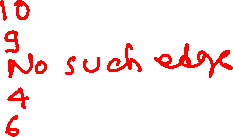 10
9
No such edge
4
6